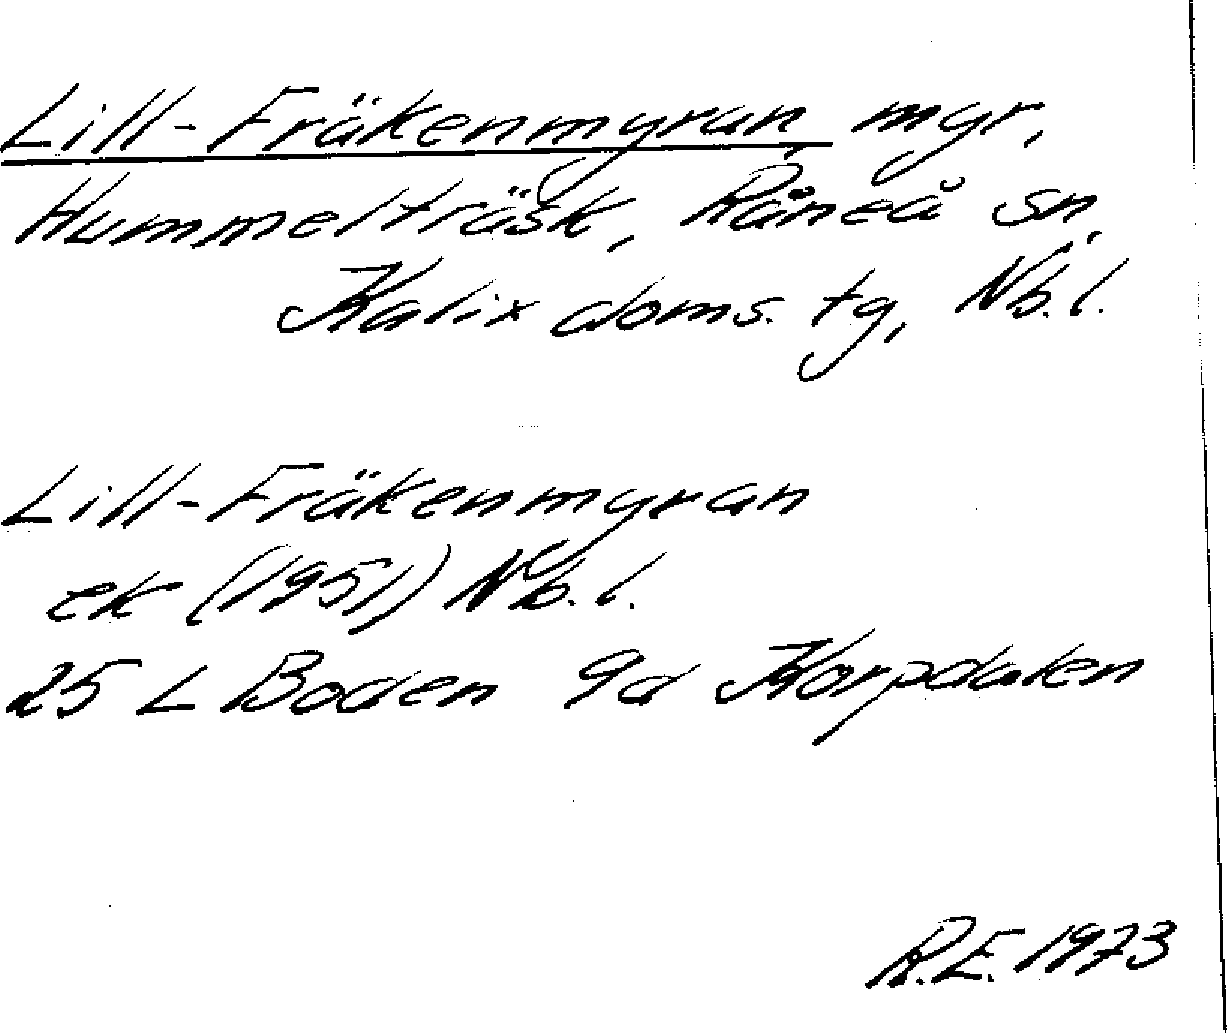 Lill-Fräkenmyran, myr,
Hummelträsk, Råneå sn,
Kalix doms. tg, Nb.l.
Lill-Fräkenmyran
ek (1951) Nb.l.
25 L Boden 9d Korpdalen
R.E. 1973